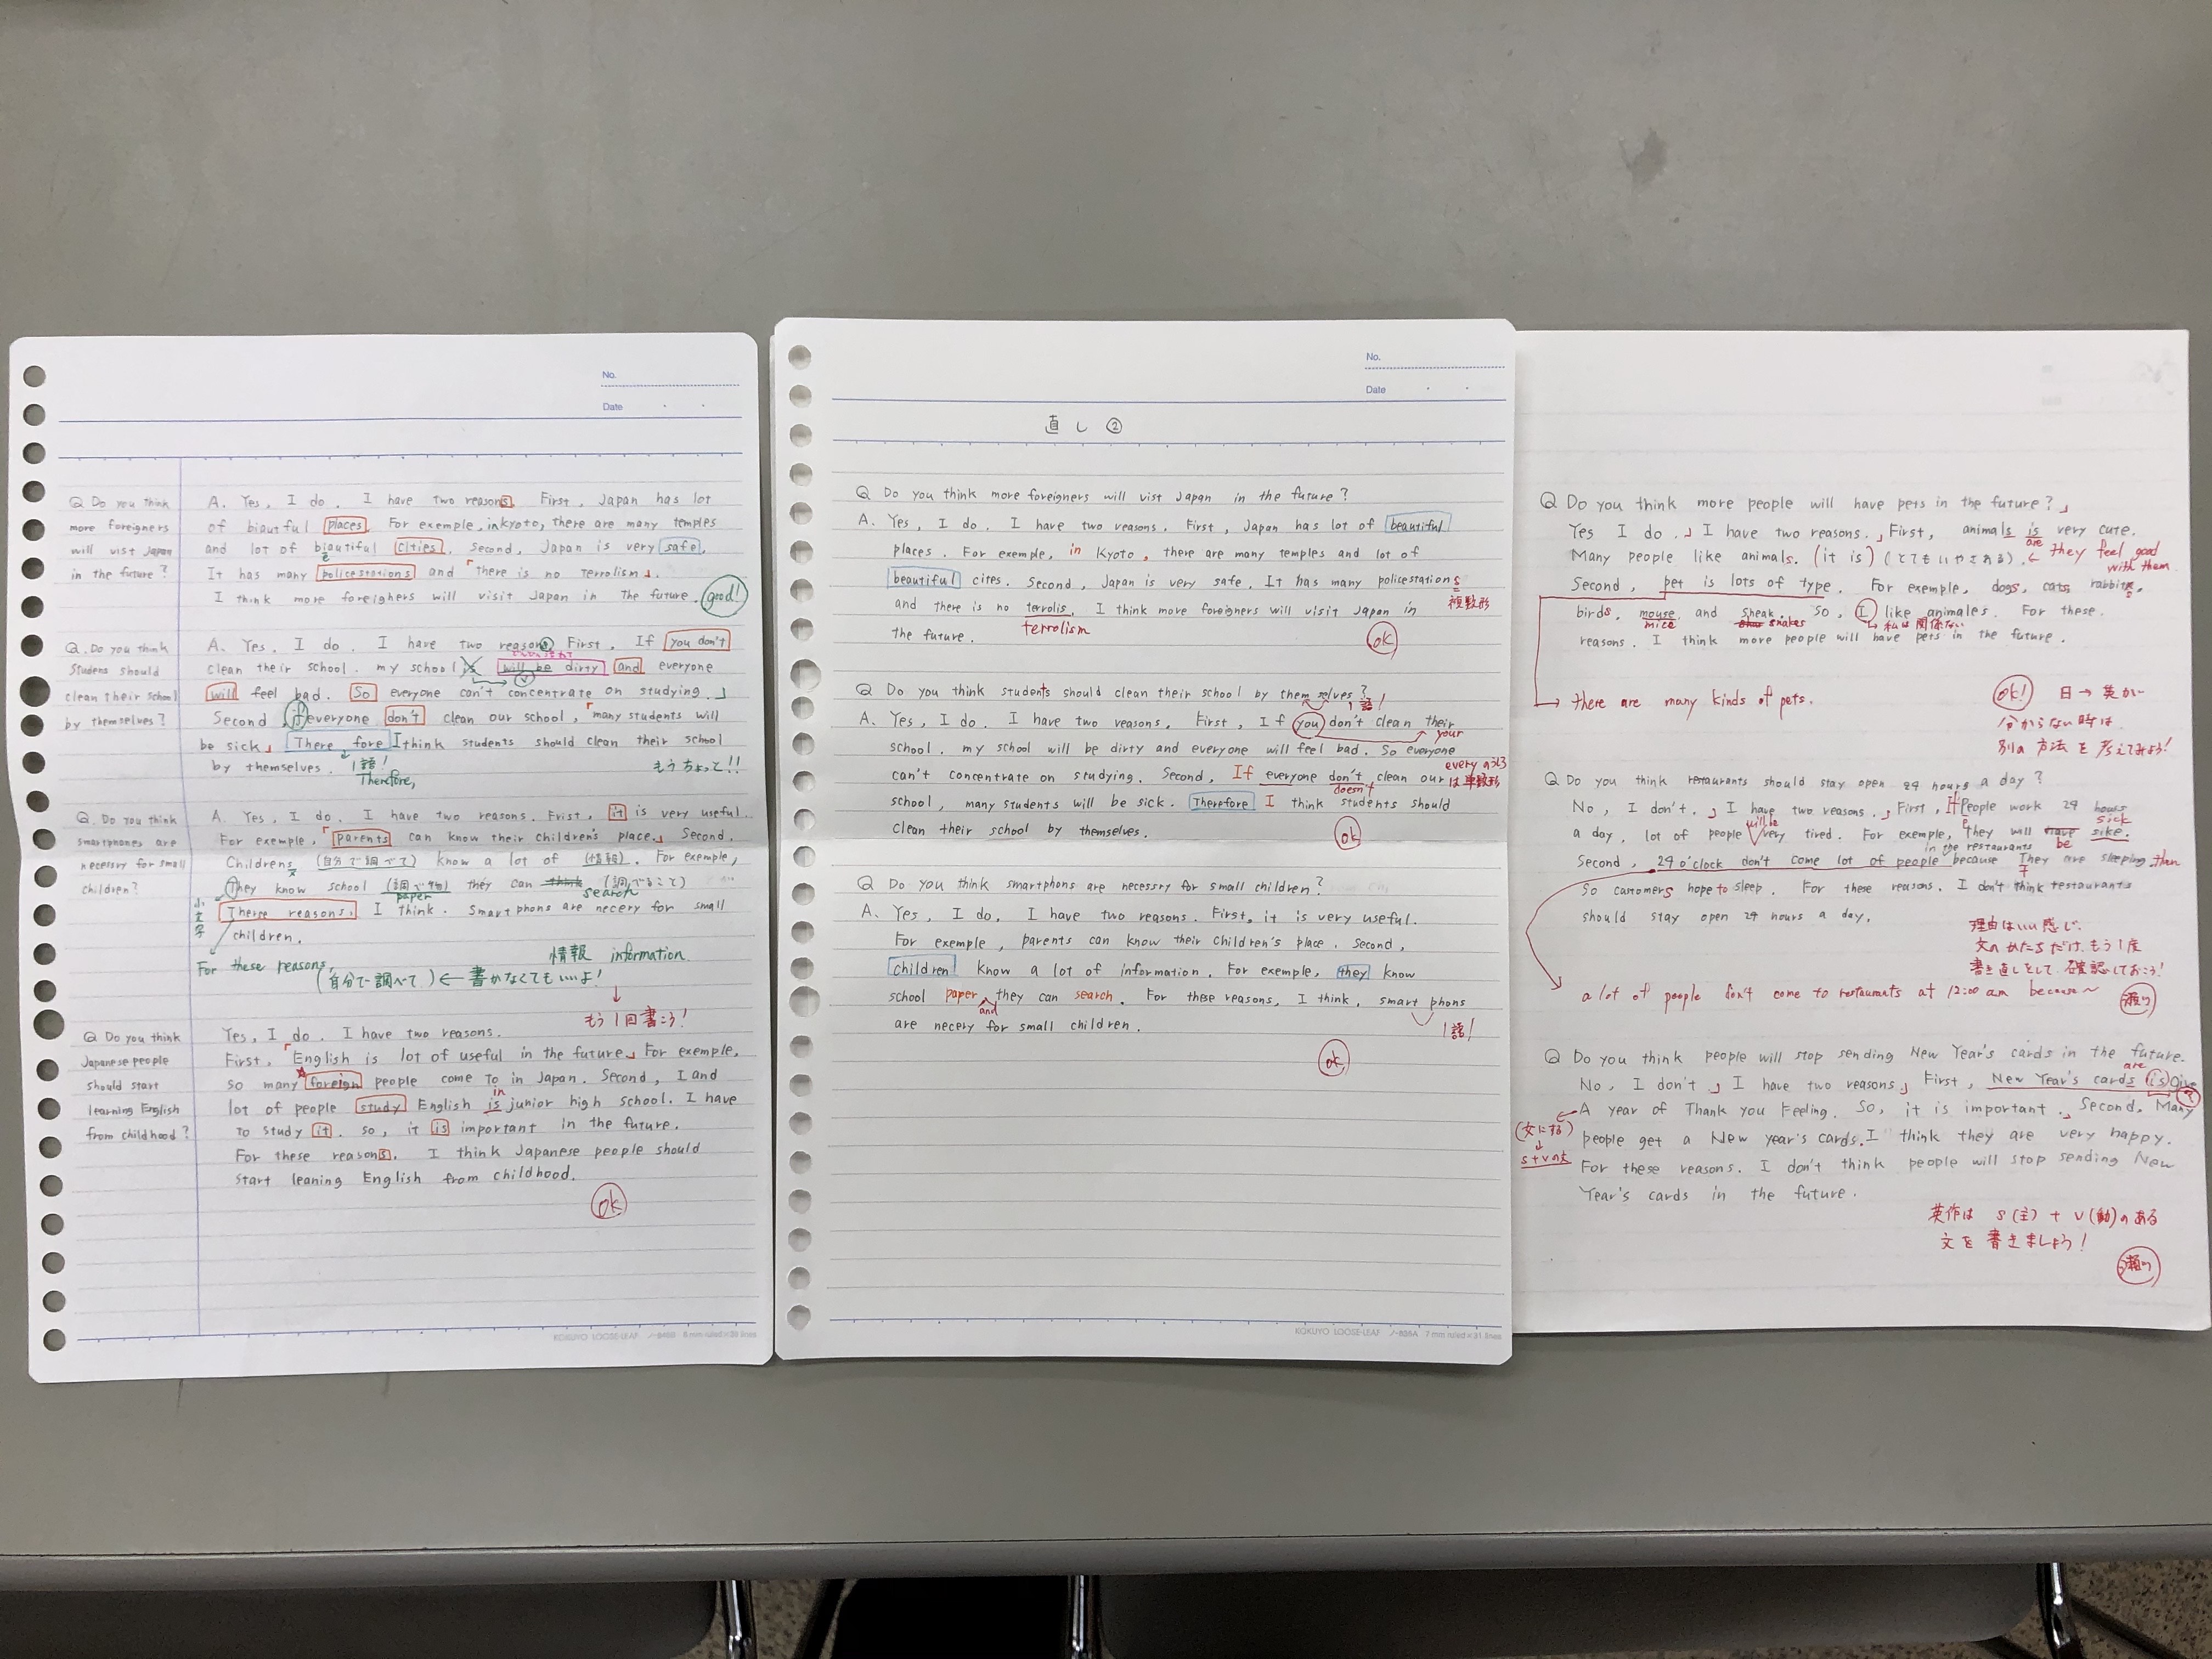 No.
Date
Q Do you think
more foreigners
will vist Japan
in the future?
A. Yes, I do. I have two reasons. First, Japan has lot
of biautiful places. For exemple, inkyoto, there are many temples
and lot of biautiful cities. Second, Japan is very safe.
It has many policestations and 「there is no terrolism」.
I think more foreighers will visit Japan in the future. good!
Q. Do you think
Students should
clean their school
by themselves?
A. Yes, I do. I have two reasons First, If you don't
clean their school. my school will be dirty and everyone
will feel bad. So everyone can't concentrate on studying.」
Second if everyone don't clean our school, 「many students will
be sick」 There fore I think students should clean their school
by themselves. 1語! もうちょっと!!
Therefore,
Q. Do you think
smartphones are
necessry for small
children?
A. Yes, I do. I have two reasons. Frist, it is very useful.
For exemple, 「parents can know their children's place.」 Second.
Childrens (自分で調べて) know a lot of (情報). For exemple,
They know school (調べ物) they can think (調べること)
paper search
小文字
There reasons, I think. Smart phons are necery for small
children.
For these reasons,
情報 information.
(自分で調べて) ← 書かなくてもいいよ!
もう1回書こう!
Q Do you think
Japanese people
should start
learning English
from childhood?
Yes, I do. I have two reasons.
First, 「English is lot of useful in the future」 For exemple,
so many foreign people come to in Japan. Second, I and
lot of people study English is junior high school. I have
in
to study it. so, it is important in the future.
For these reasons, I think Japanese people should
start leaning English from childhood.
ok
KOKUYO LOOSE-LEAF
No.
Date
直し②
Q Do you think more foreigners will vist Japan in the future?
A. Yes, I do. I have two reasons. First, Japan has lot of beautiful
places. For exemple, in Kyoto, there are many temples and lot of
beautiful cites. Second, Japan is very safe. It has many policestations
複数形
and there is no terrolis. I think more foreigners will visit Japan in
terrolism
the future.
ok
Q Do you think students should clean their school by them selves?
1語!
A. Yes, I do. I have two reasons. First, If you don't clean their
your
school. my school will be dirty and everyone will feel bad. So everyone
can't concentrate on studying. Second, If everyone don't clean our
doesn't
every のうしろは単数形
school, many students will be sick. Therefore I think students should
clean their school by themselves.
ok
Q Do you think smartphons are necessry for small children?
A. Yes, I do. I have two reasons. First, it is very useful.
For exemple, parents can know their children's place. Second,
children know a lot of information. For exemple, they know
school paper they can search. For these reasons, I think, smart phons
and
are necery for small children.
1語!
ok
KOKUYO LOOSE-LEAF ノ-836A 7 mm ruled×31 lines
Q Do you think more people will have pets in the future?」
Yes I do.」 I have two reasons.」 First, animals is very cute.
are
Many people like animals. (it is) (とてもいやされる). ← they feel good
with them.
Second, pet is lots of type. For exemple, dogs, cats, rabbits,
birds, mouse and Sneak. So, I like animales. For these
mice snakes 私は関係ない
reasons. I think more people will have pets in the future.
there are many kinds of pets.
ok! 日→英が
分からない時は
別の方法を考えてみよう!
Q Do you think restaurants should stay open 24 hours a day?
No, I don't.」 I have two reasons.」 First, If People work 24 hours
a day, lot of people very tired. For exemple, they will have sike.
will be be sick
in the restaurants
Second, 24 o'clock don't come lot of people because They are sleeping then
So customers hope to sleep. For these reasons. I don't think restaurants
should stay open 24 hours a day.
理由はいい感じ.
文のかたちだけ、もう1度
書き直しをして、確認しておこう!
a lot of people don't come to restaurants at 12:00 am because~
Q Do you think people will stop sending New Year's cards in the future.
No, I don't」 I have two reasons」 First, New Year's cards is Give
are
A year of Thank you Feeling. So, it is important.」 Second, Many
(文にする)
people get a New year's cards. I think they are very happy.
s+vの文
For these reasons. I don't think people will stop sending New
Year's cards in the future.
英作は s(主) + v(動)のある
文を書きましょう!